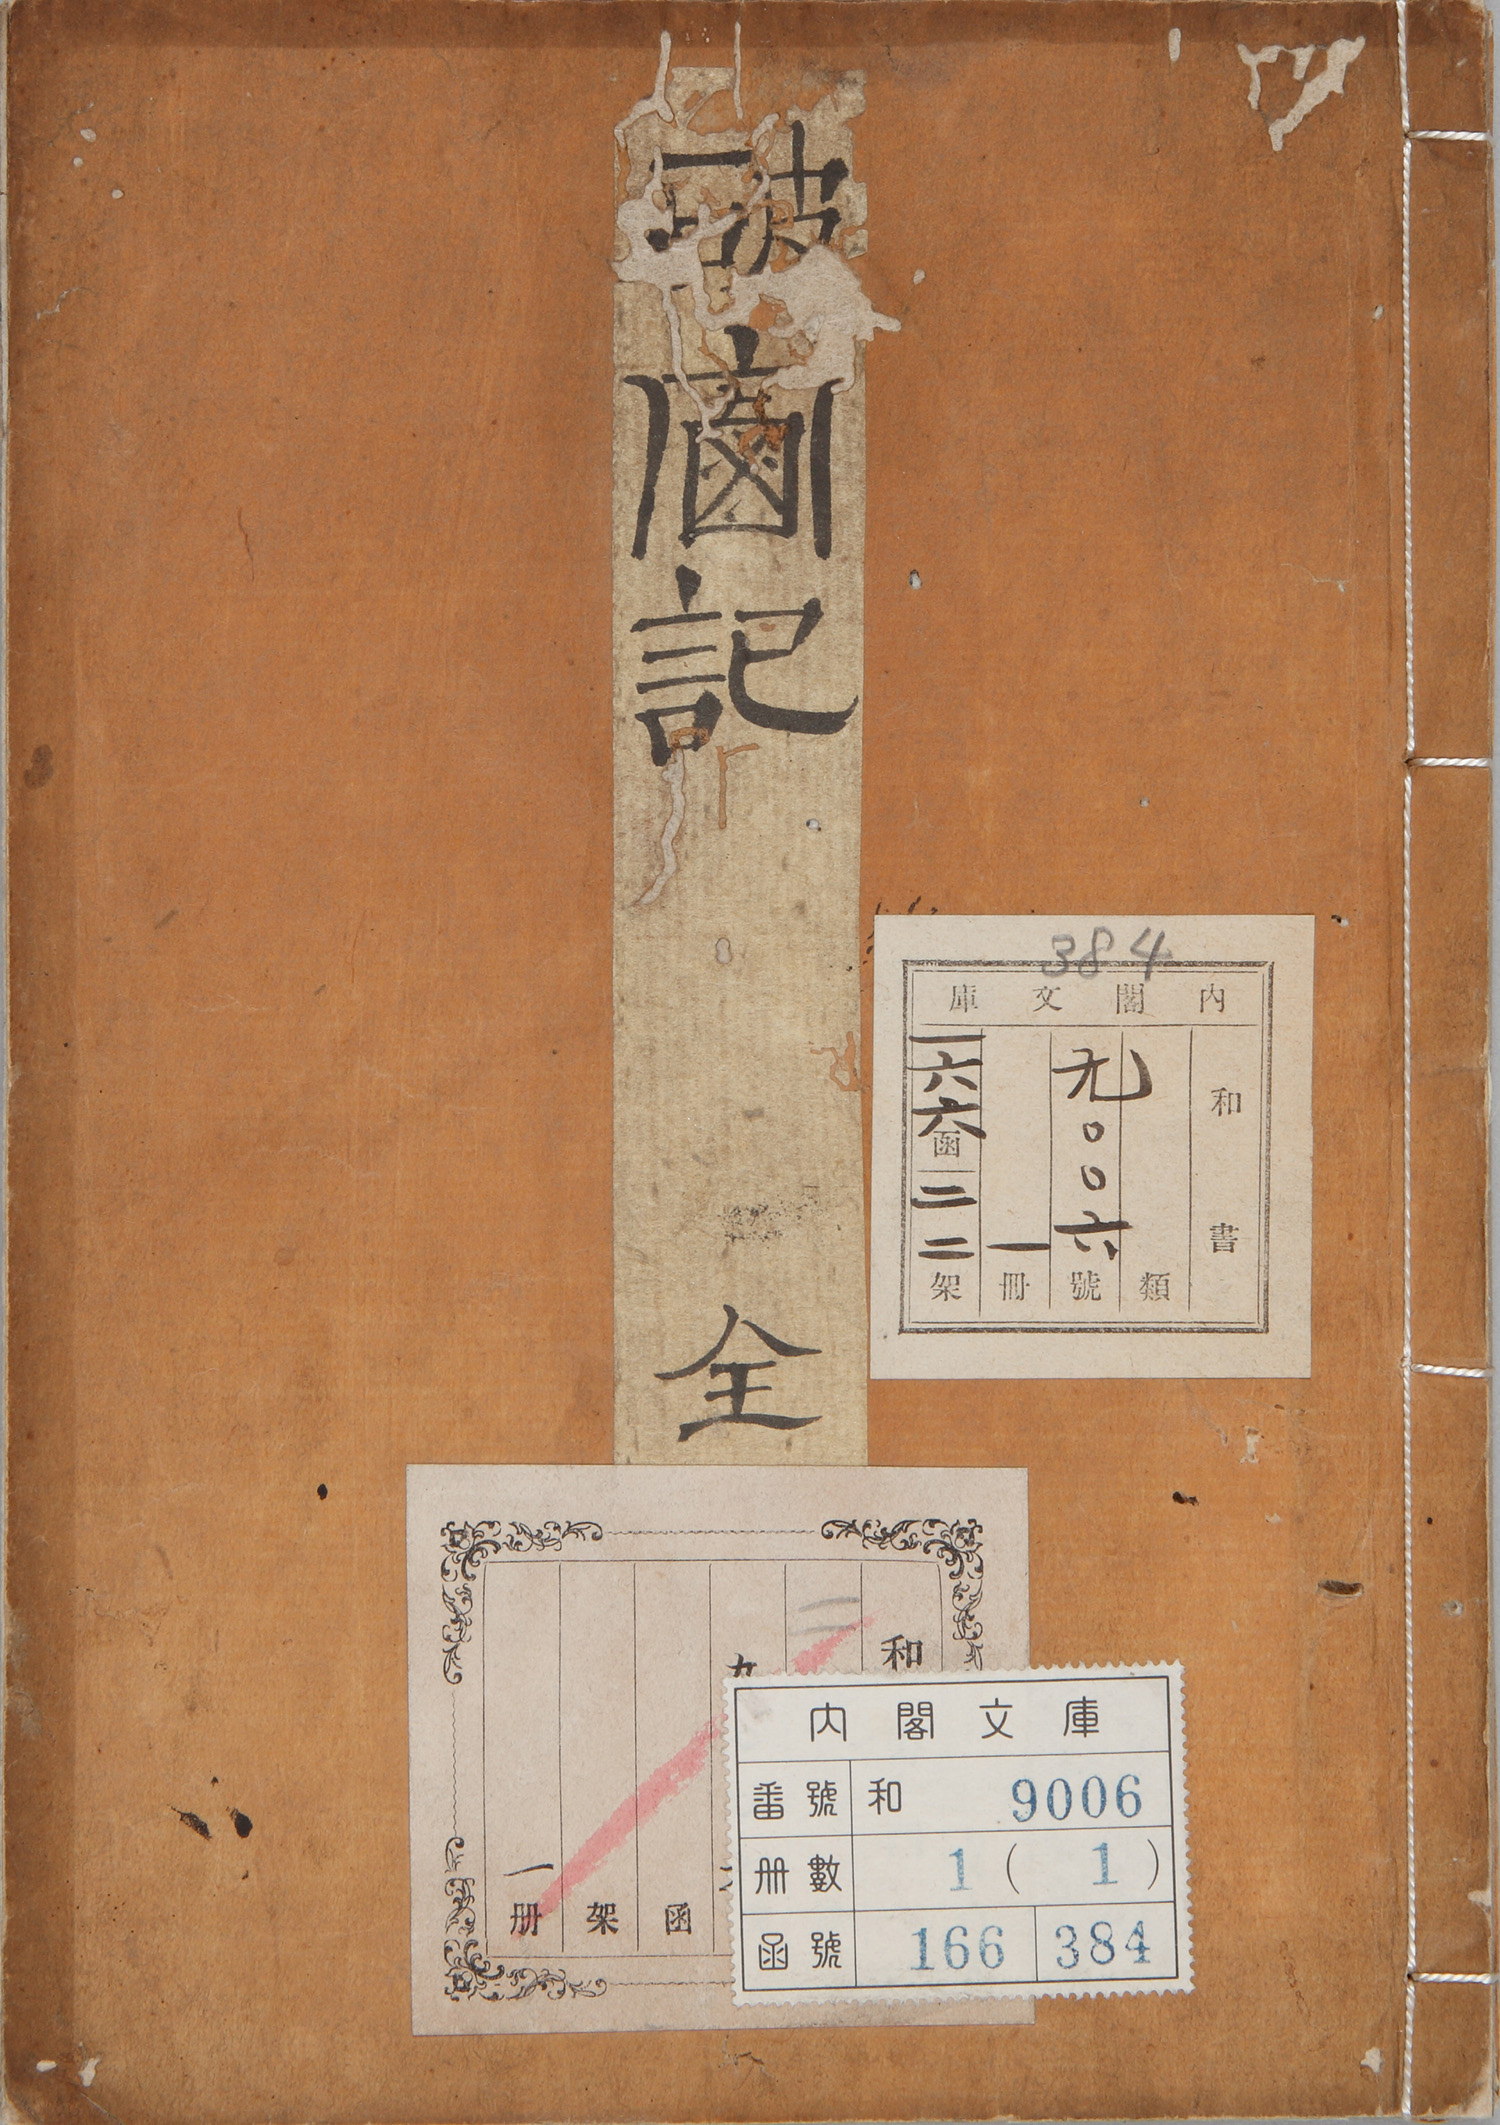 破窗記
全
384
内閣文庫
和書
類
九〇〇六號
一冊
一六六函
二二架
和
二
九
函
架
一册
内閣文庫
番號 和 9006
册數 1 ( 1 )
函號 166 384